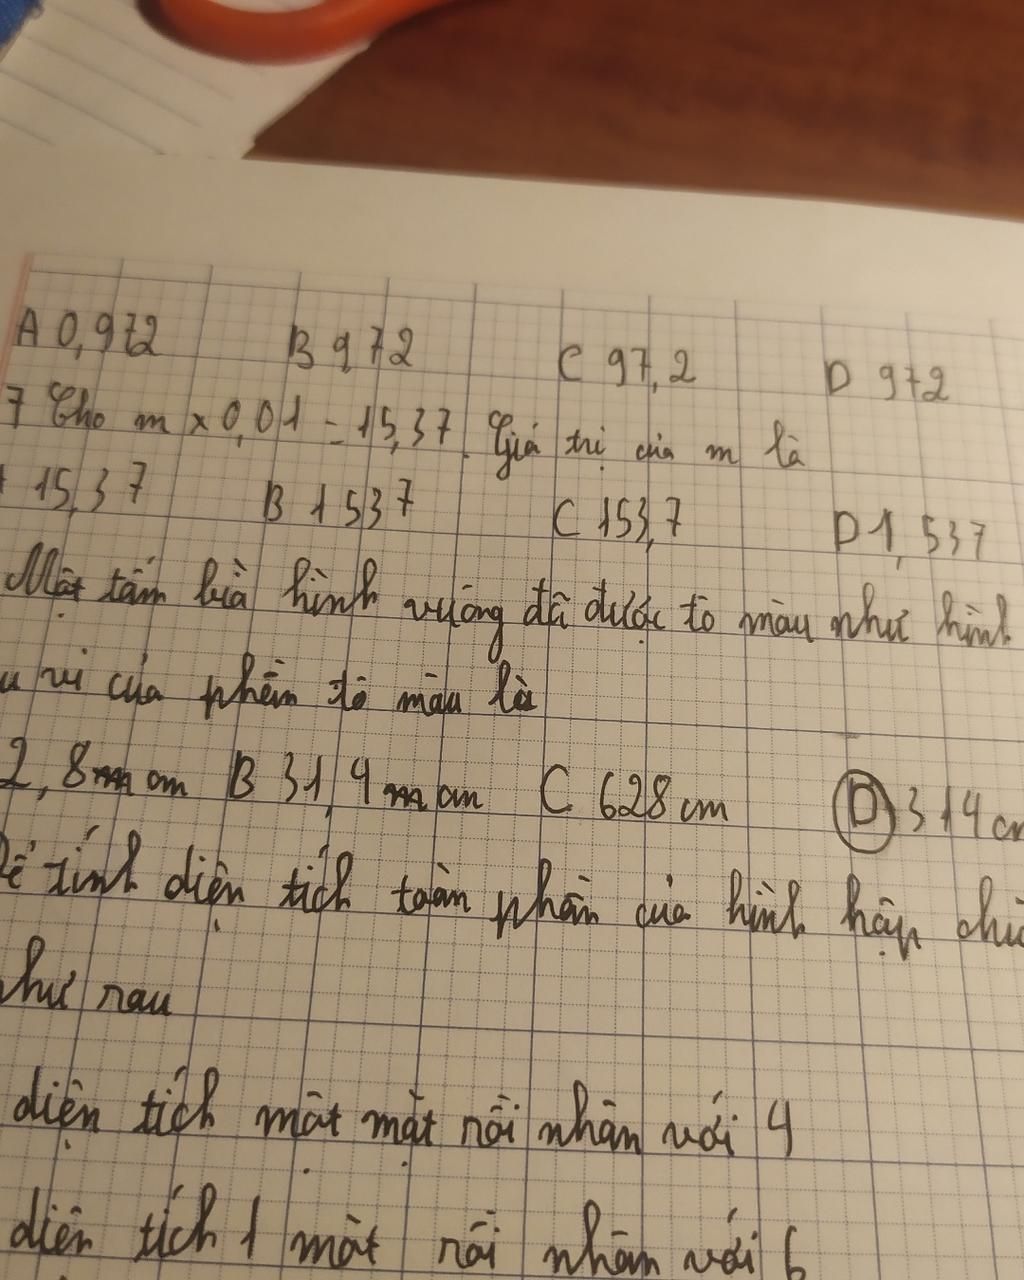 A 0,972 B 972 C 97,2 D 972
7 Cho m x 0,01 = 15,37. Giá trị của m là
15,37 B 1537 C 153,7 D 1,537
Một tấm bìa hình vuông đã được tô màu như hình
u vi của phần tô màu là
2,8 cm B 31,4 cm C 628 cm D 314 cm
Để tính diện tích toàn phần của hình hộp chữ
như sau
diện tích một mặt rồi nhân với 4
diện tích 1 mặt rồi nhân với 6